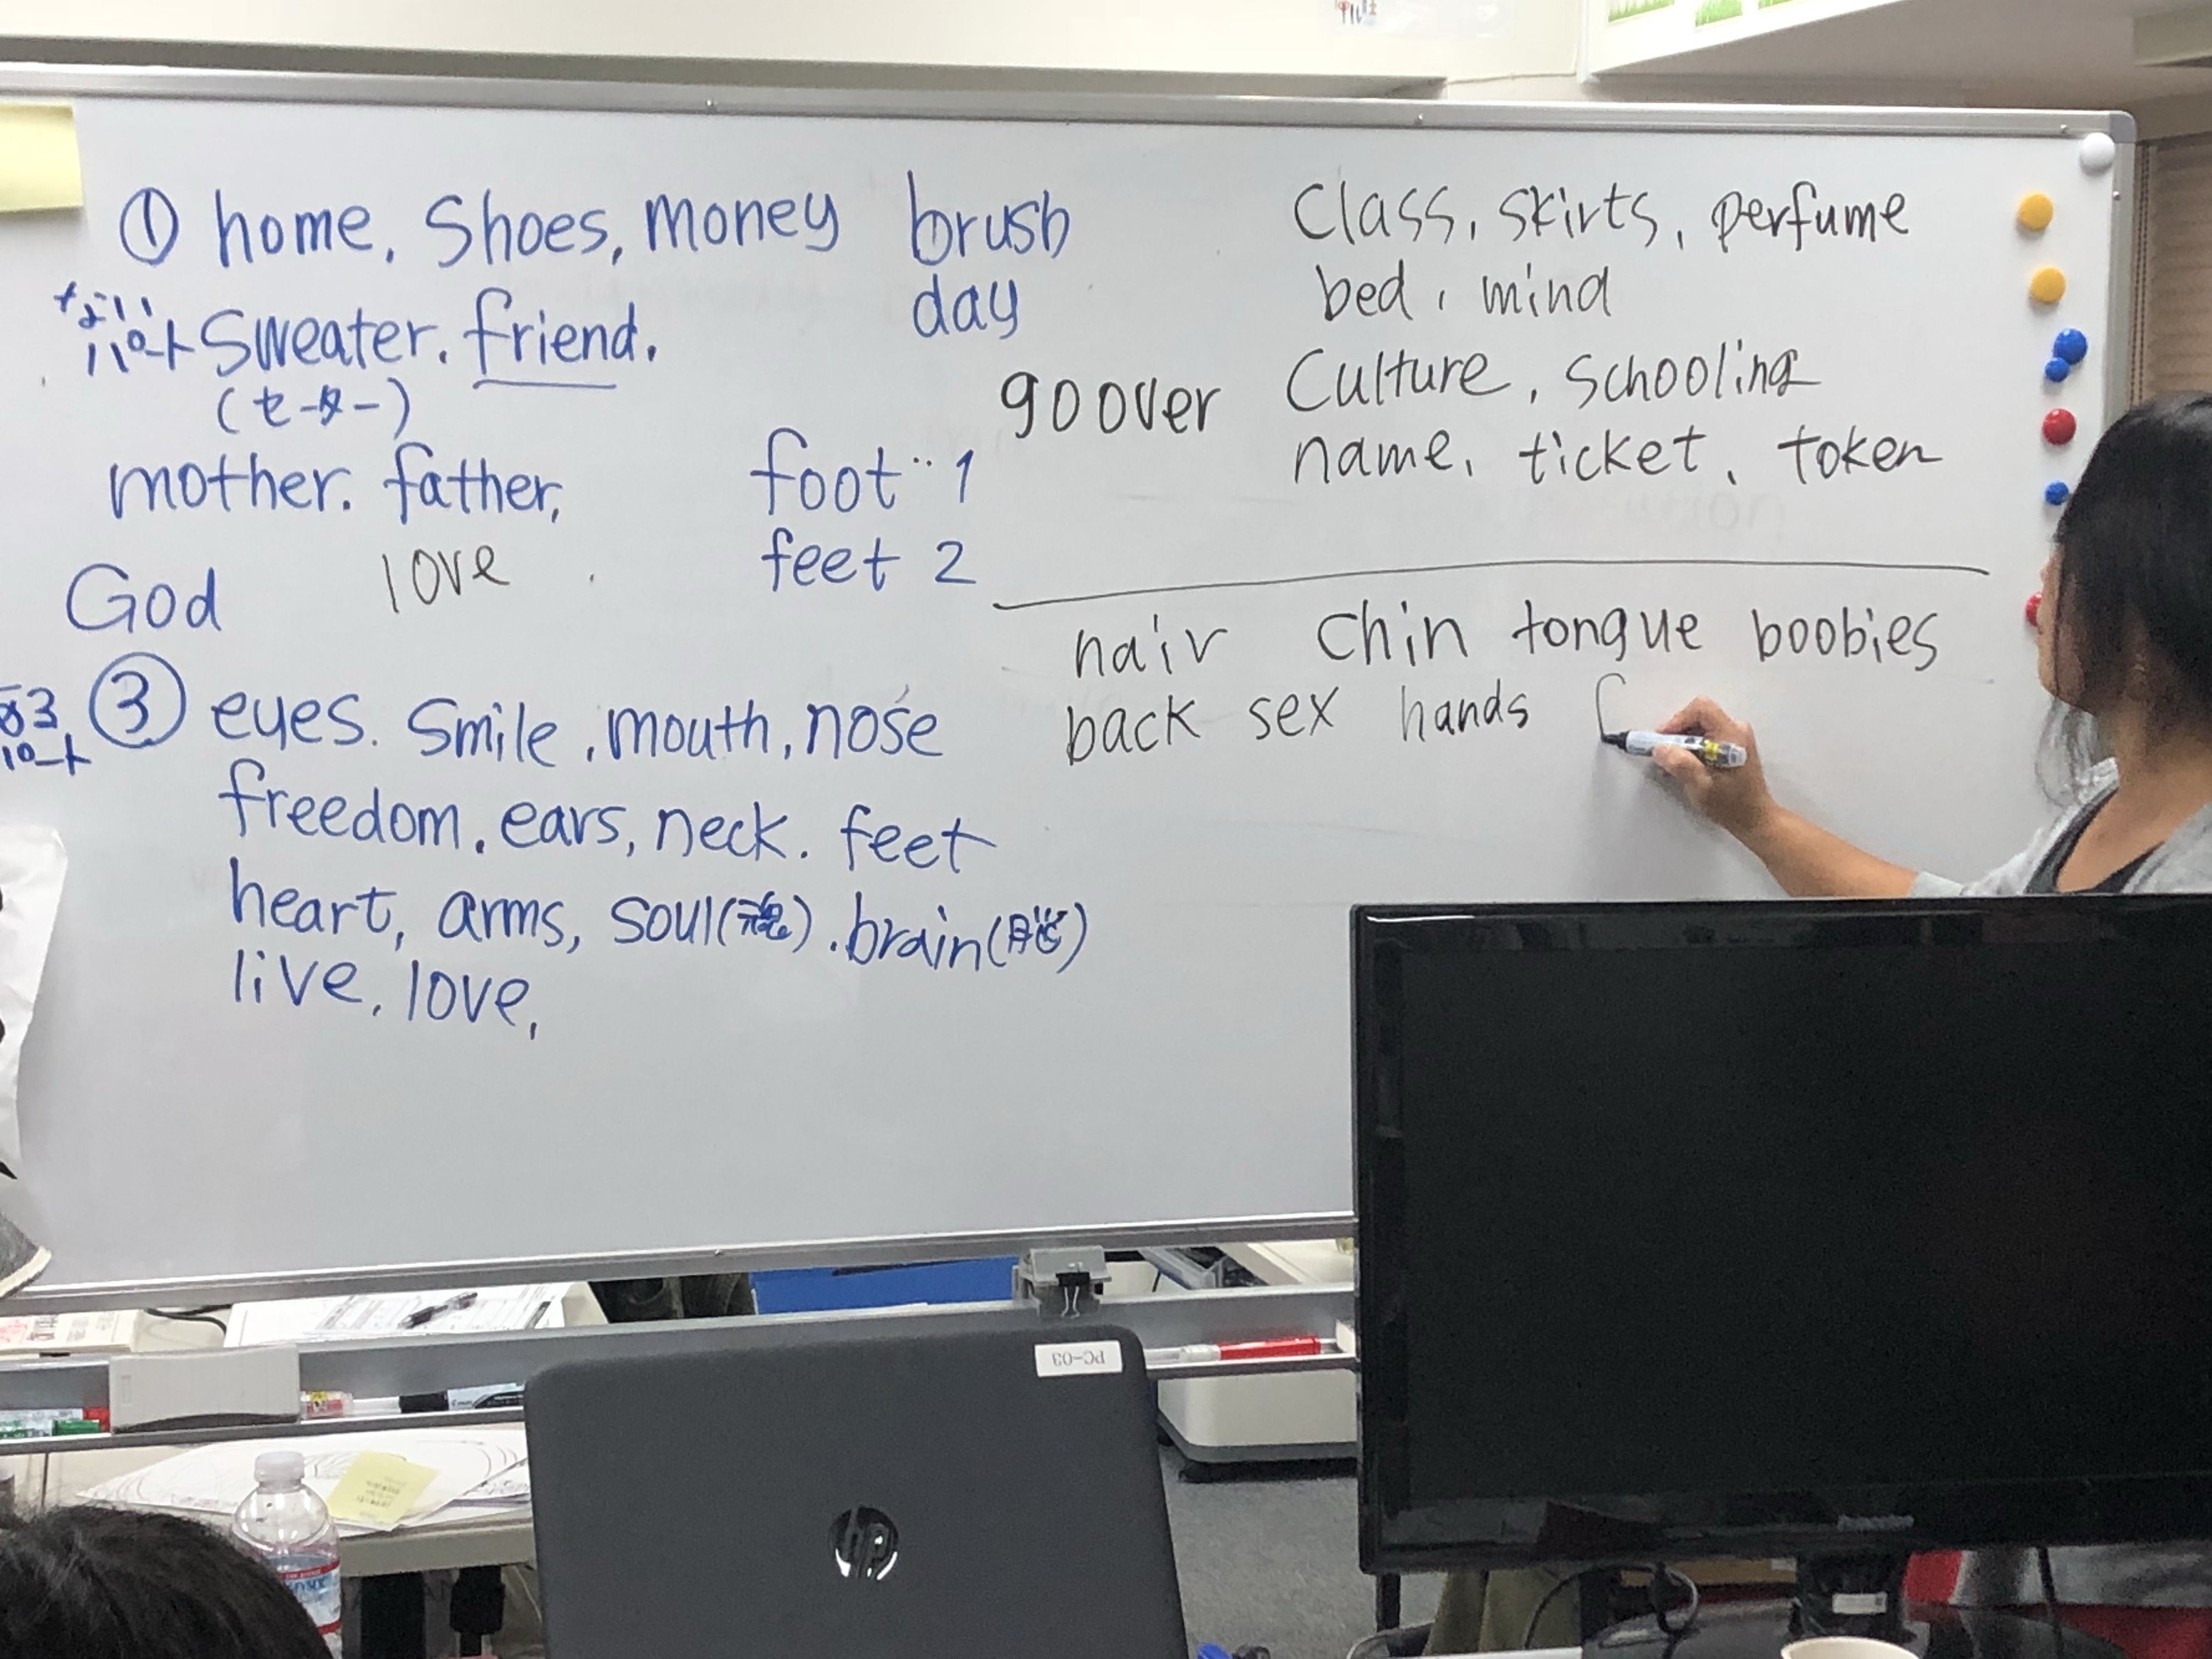 ① home, Shoes, money brush
day
ない
パート Sweater. friend.
(セーター)
mother. father,
God love
foot ‥ 1
feet 2
Class, skirts, perfume
bed, mind
go over Culture, schooling
name, ticket, token
hair Chin tongue boobies
back sex hands
③ eyes. Smile, mouth, nose
パート
freedom. ears, neck. feet
heart, arms, soul(魂). brain(脳)
live, love,
PC-03
hp